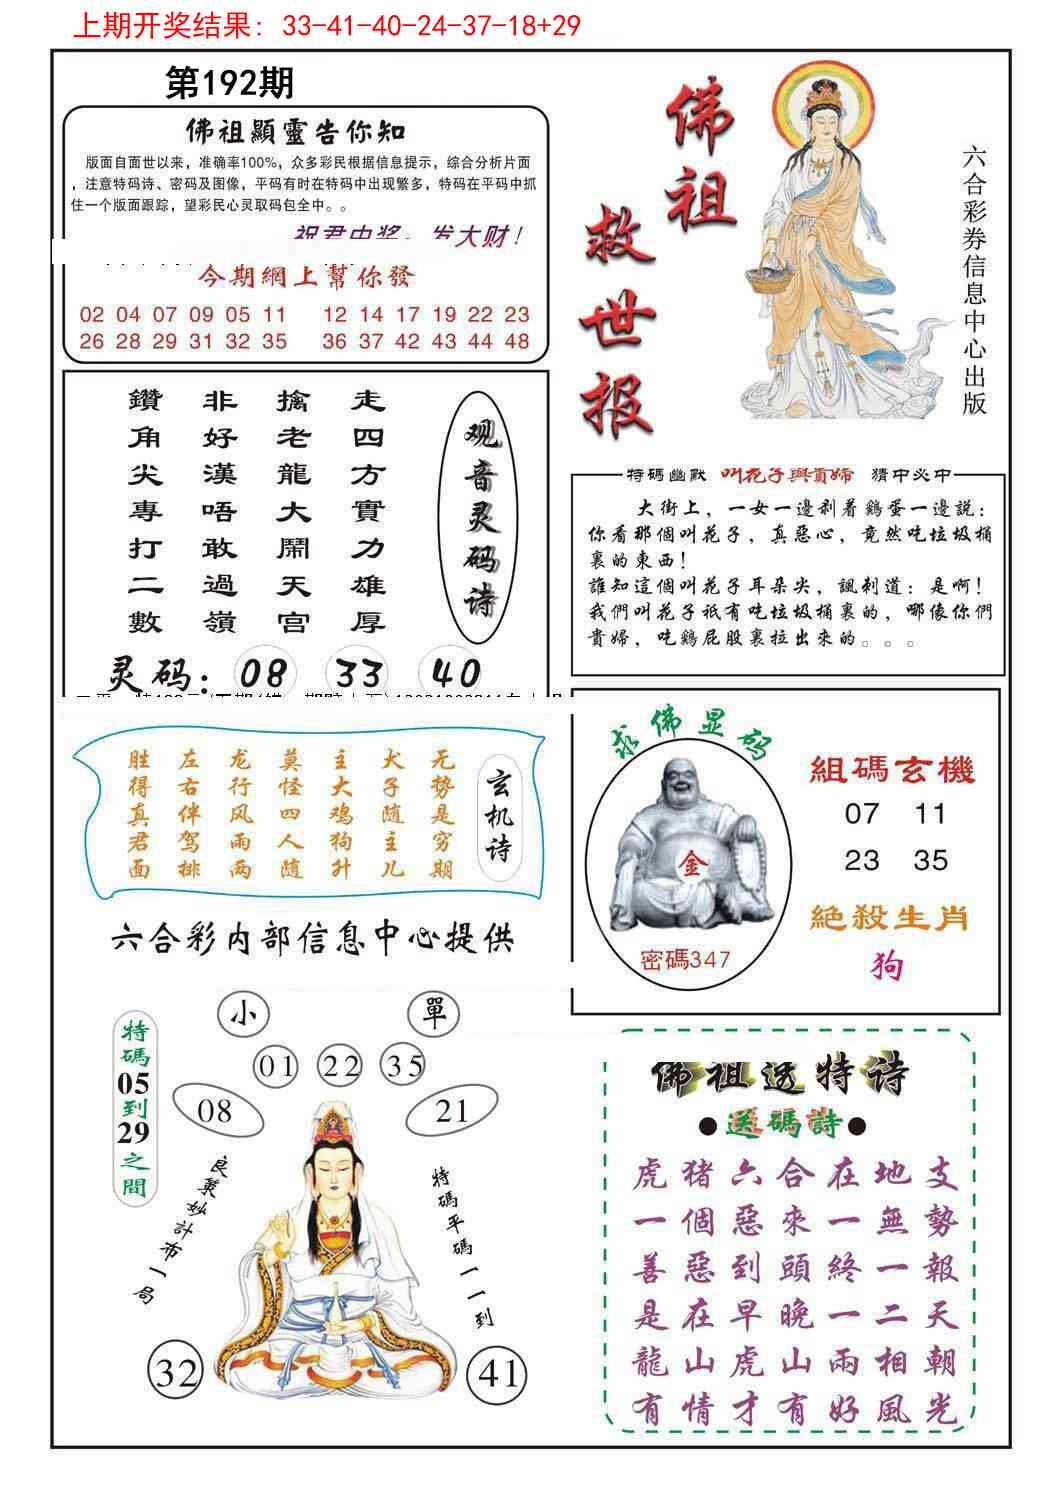 上期开奖结果: 33-41-40-24-37-18+29
第192期
佛祖顯靈告你知
版面自面世以来，准确率100%，众多彩民根据信息提示，综合分析片面
，注意特码诗、密码及图像，平码有时在特码中出现繁多，特码在平码中抓
住一个版面跟踪，望彩民心灵取码包全中。。
祝君中奖，发大财！
今期網上幫你發
02 04 07 09 05 11 12 14 17 19 22 23
26 28 29 31 32 35 36 37 42 43 44 48
佛祖
救世报
六合彩券信息中心出版
走四方實力雄厚
擒老龍大鬧天宫
非好漢唔敢過嶺
鑽角尖專打二數
观音灵码诗
灵码: 08 33 40
特碼幽默 叫花子與貴婦 猜中必中
大街上，一女一邊剥着鷄蛋一邊説：
你看那個叫花子，真惡心，竟然吃垃圾桶
裏的東西！
誰知這個叫花子耳朵尖，諷刺道：是啊！
我們叫花子祇有吃垃圾桶裏的，哪像你們
貴婦，吃鷄屁股裏拉出來的。。。
玄机诗
无势是穷期
犬子随主儿
主大鸡狗升
莫怪四人随
龙行风雨两
左右伴驾排
胜得真君面
六合彩内部信息中心提供
求佛显码
金
密碼347
組碼玄機
07 11
23 35
絕殺生肖
狗
特碼05到29之間
小 單
01 22 35
08 21
良策妙計布一局
特碼平碼一一到
32 41
佛祖透特诗
●送碼詩●
虎猪六合在地支
一個惡來一無勢
善惡到頭終一報
是在早晚一二天
龍山虎山兩相朝
有情才有好風光